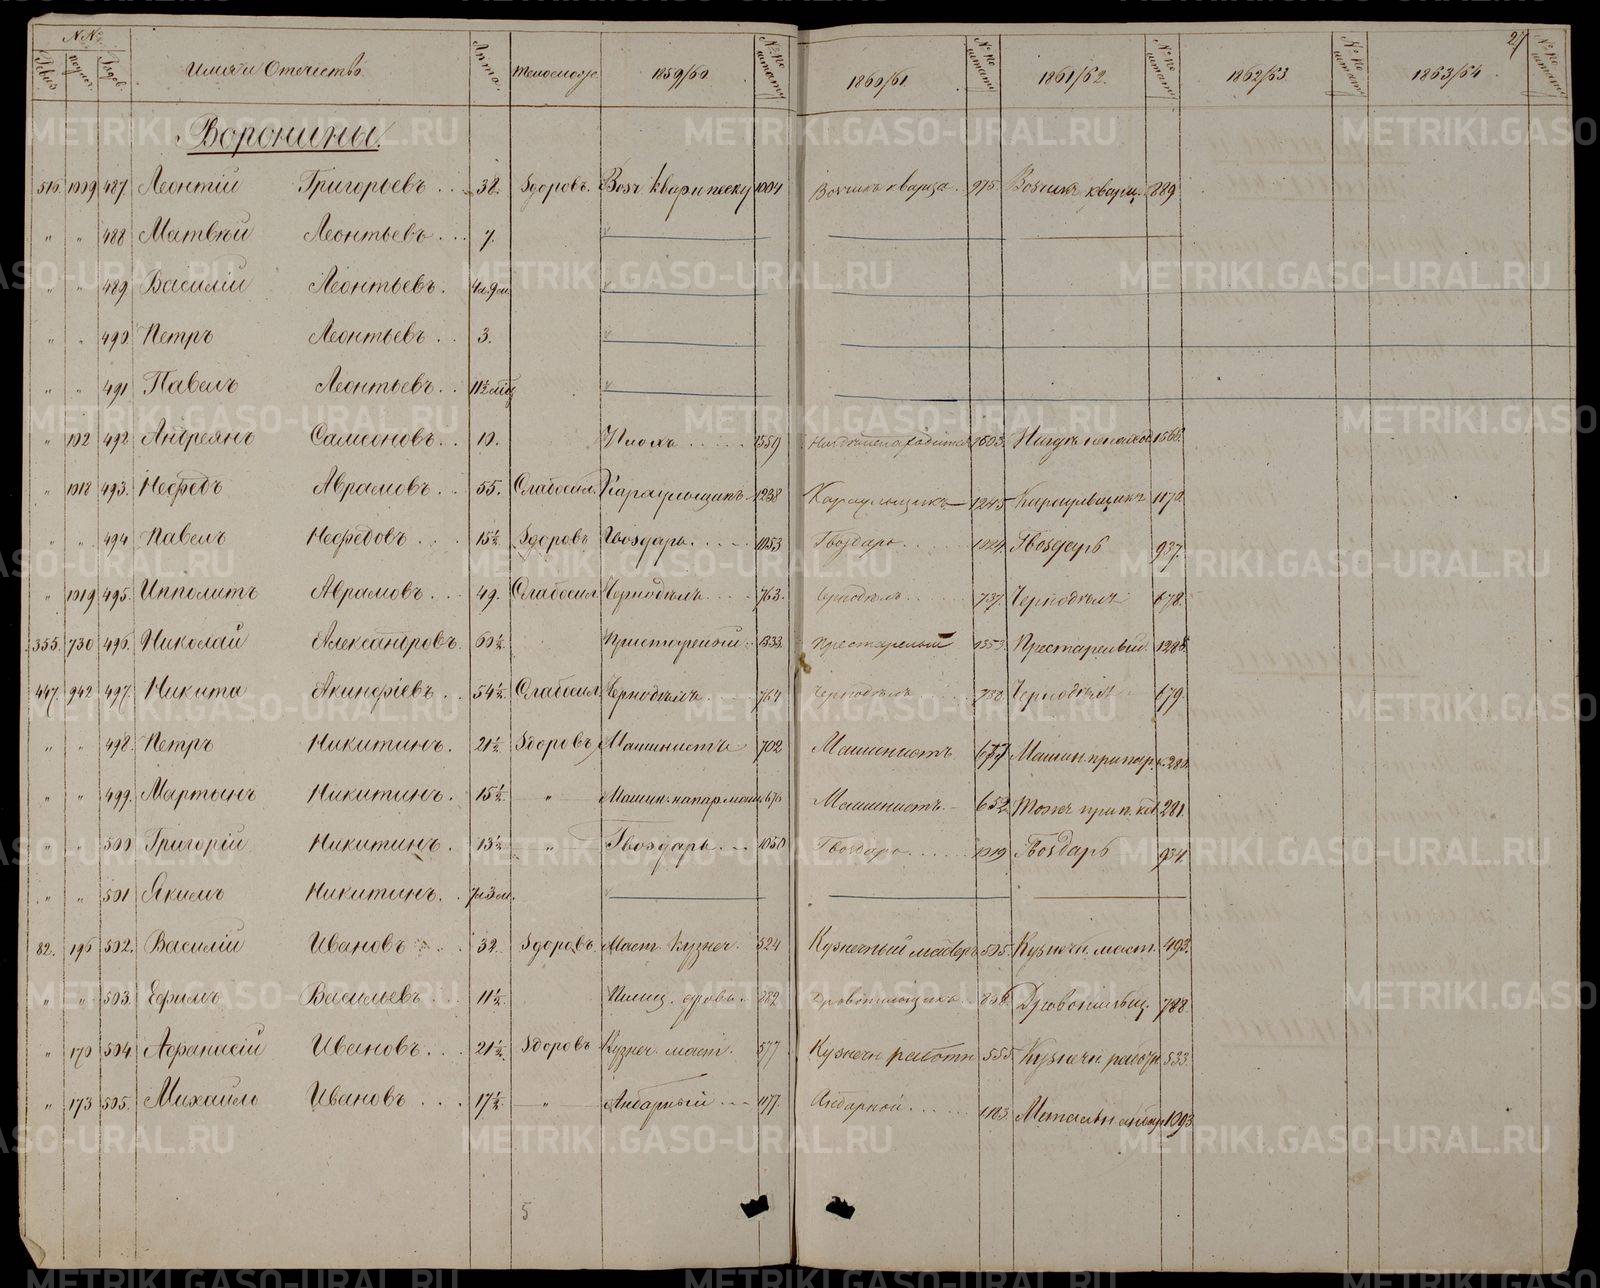 27
№№
Имя и Отечество
Лета
Телосложе
1859/60
№ по штату
1860/61
№ по штату
1861/62
№ по штату
1862/63
№ по штату
1863/64
№ по штату
Воронины
516 1009 487 Леонтій Григорьевъ 38 Здоровъ Воз. квар и песку 1004 Возчикъ кварца 975 Возчикъ кварц. 889
" " 488 Матвѣй Леонтьевъ 7
" " 489 Василій Леонтьевъ 4 л 9 м
" " 490 Петръ Леонтьевъ 3
" " 491 Павелъ Леонтьевъ 11½
" 102 492 Андреянъ Самсоновъ 10 1559 1603 1568
" 1018 493 Нефедъ Аврамовъ 55 Слабосил. Караульщикъ 1238 Караульщикъ 1245 Караульщикъ 1172
" " 494 Павелъ Нефедовъ 15½ Здоровъ Гвоздарь 1053 Гвоздарь 1024 Гвоздарь 937
" 1019 495 Ипполитъ Аврамовъ 49 Слабосил Чернодѣлъ 763 Чернодѣлъ 737 Чернодѣлъ 678
355 730 496 Николай Александровъ 60½ Пристарелый 1333 Престарелый 1353 Престарелый 128
447 942 497 Никита Акинфіевъ 54½ Слабосил Чернодѣлъ 764 Чернодѣлъ 738 Чернодѣлъ 679
" " 498 Петръ Никитинъ 21½ Здоровъ Машинистъ 702 Машинистъ 677 Машин. при пар. к. 280
" " 499 Мартынъ Никитинъ 15½ " Машин. на пар. маш. 676 Машинистъ 652 Тоже при п. кот 281
" " 500 Григорій Никитинъ 13½ " Гвоздарь 1050 Гвоздарь 1019 Гвоздарь 934
" " 501 Якимъ Никитинъ 7 л 3 м
82 196 502 Василій Ивановъ 32 Здоровъ Маст. Кузнеч. 524 Кузнечный мастеръ 505 Кузнечн. маст. 493
" " 503 Ефимъ Васильевъ 11½ Пилищ. дровъ 882 Дровопильщикъ 856 Дровопильщ. 788
" 170 504 Афанасій Ивановъ 21½ Здоровъ Кузнеч. маст. 577 Кузнечн работн 555 Кузнечн. работн 533
" 173 505 Михаило Ивановъ 17½ " Анбарный 1177 Анбарной 1183 1093
5
METRIKI.GASO-URAL.RU